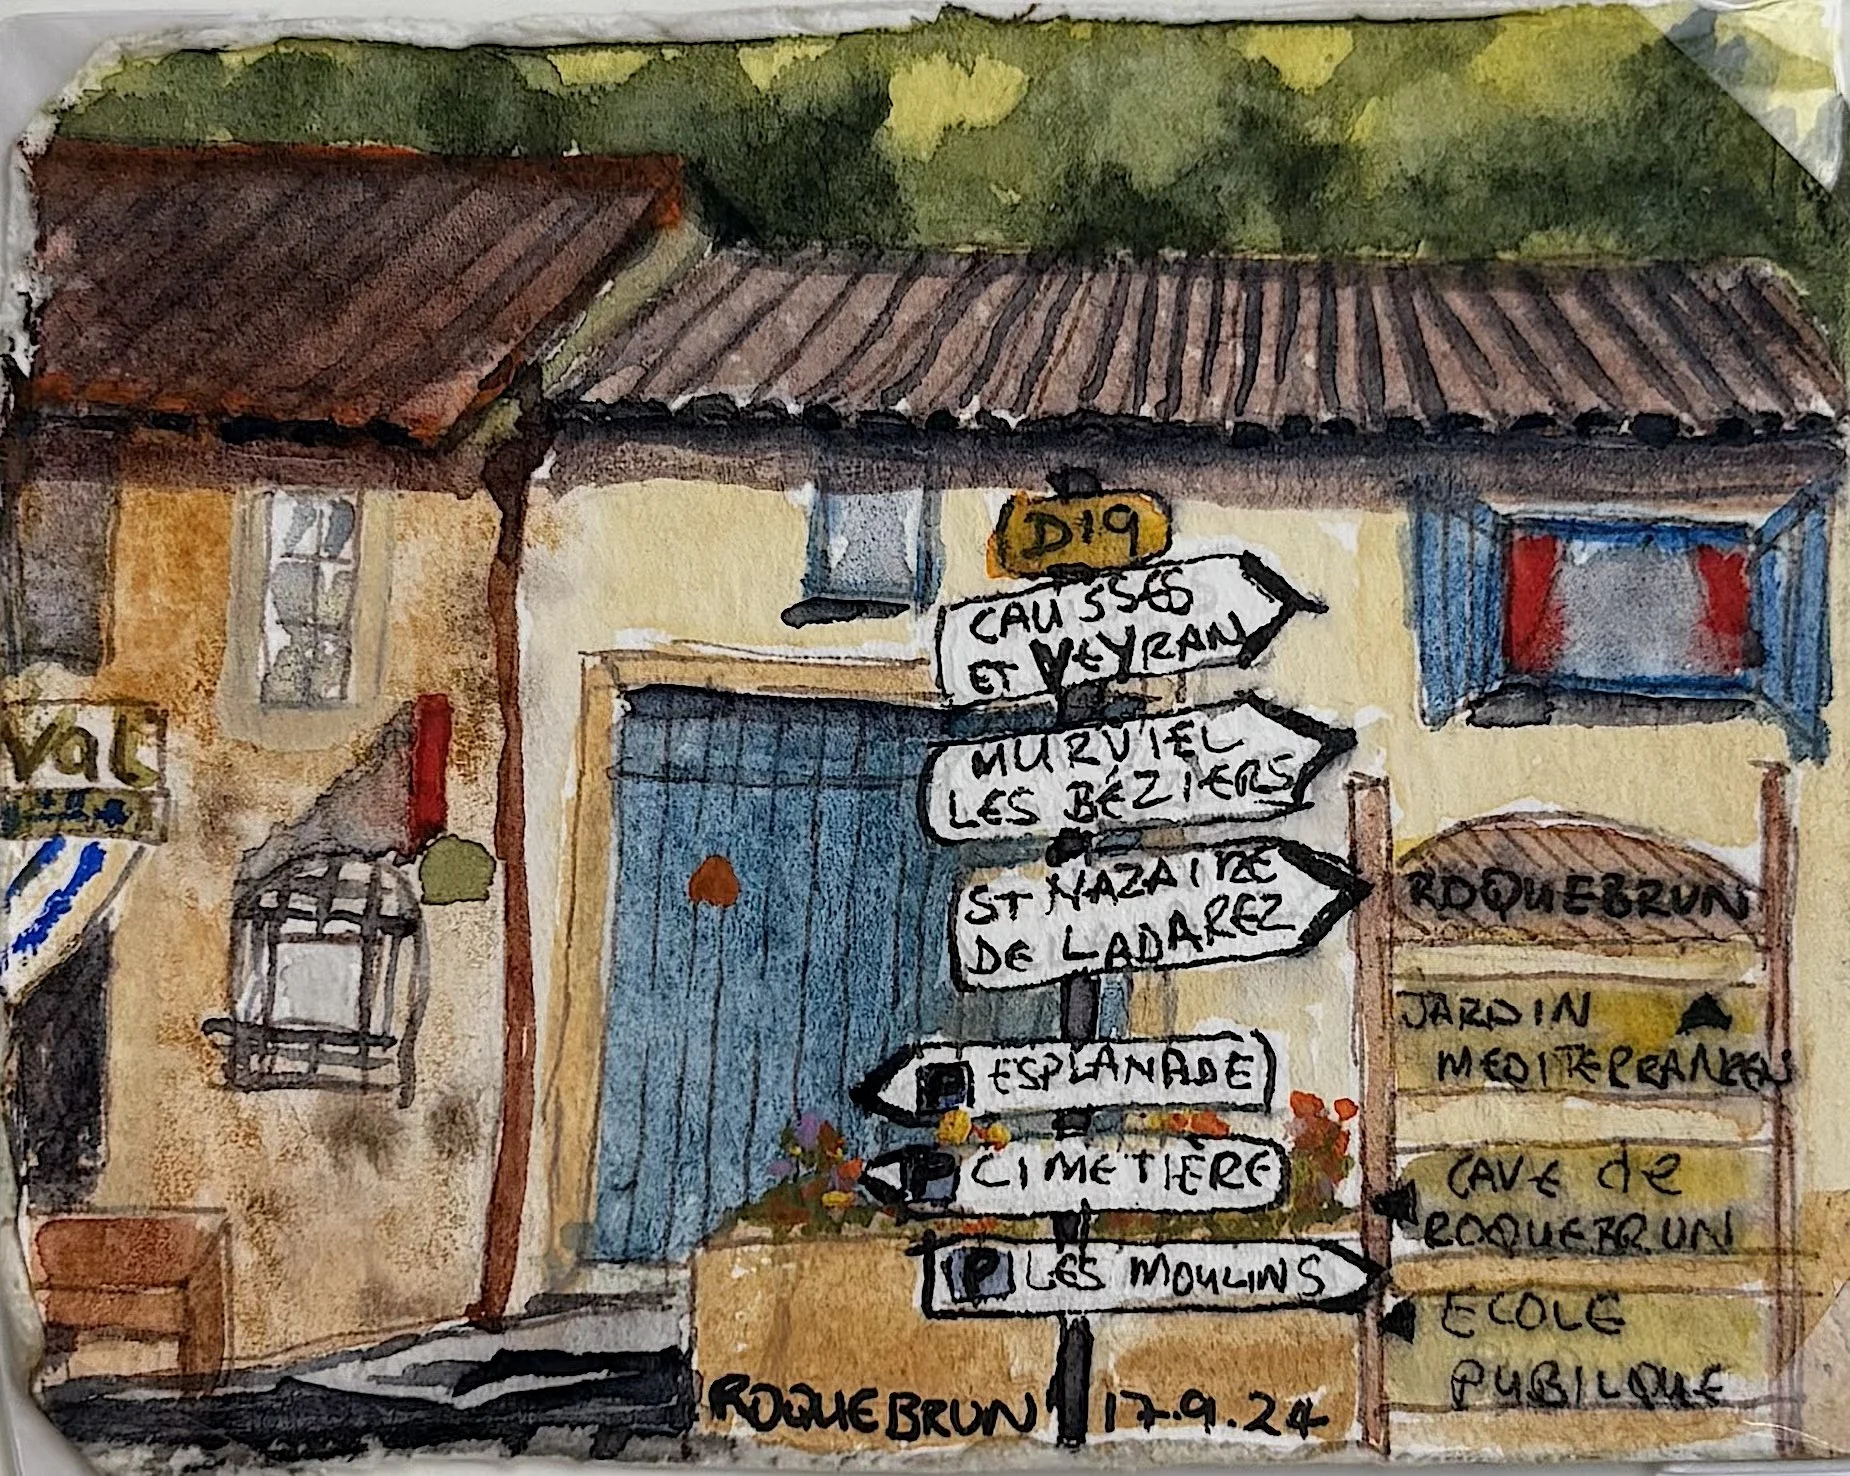 Val
D19
CAUSSES
ET VEYRAN
MURVIEL
LES BÉZIERS
ST NAZAIRE
DE LADAREZ
P ESPLANADE
P CIMETIÈRE
P LES MOULINS
ROQUEBRUN
JARDIN
MEDITERRANEEN
CAVE de
ROQUEBRUN
ECOLE
PUBILQUE
ROQUEBRUN 17.9.24